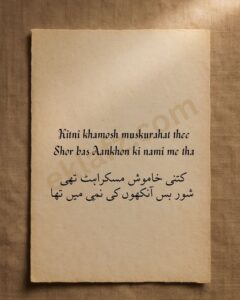 Kitni khamosh muskurahat thee
Shor bas Aankhon ki nami me tha
کتنی خاموش مسکراہٹ تھی
شور بس آنکھوں کی نمی میں تھا